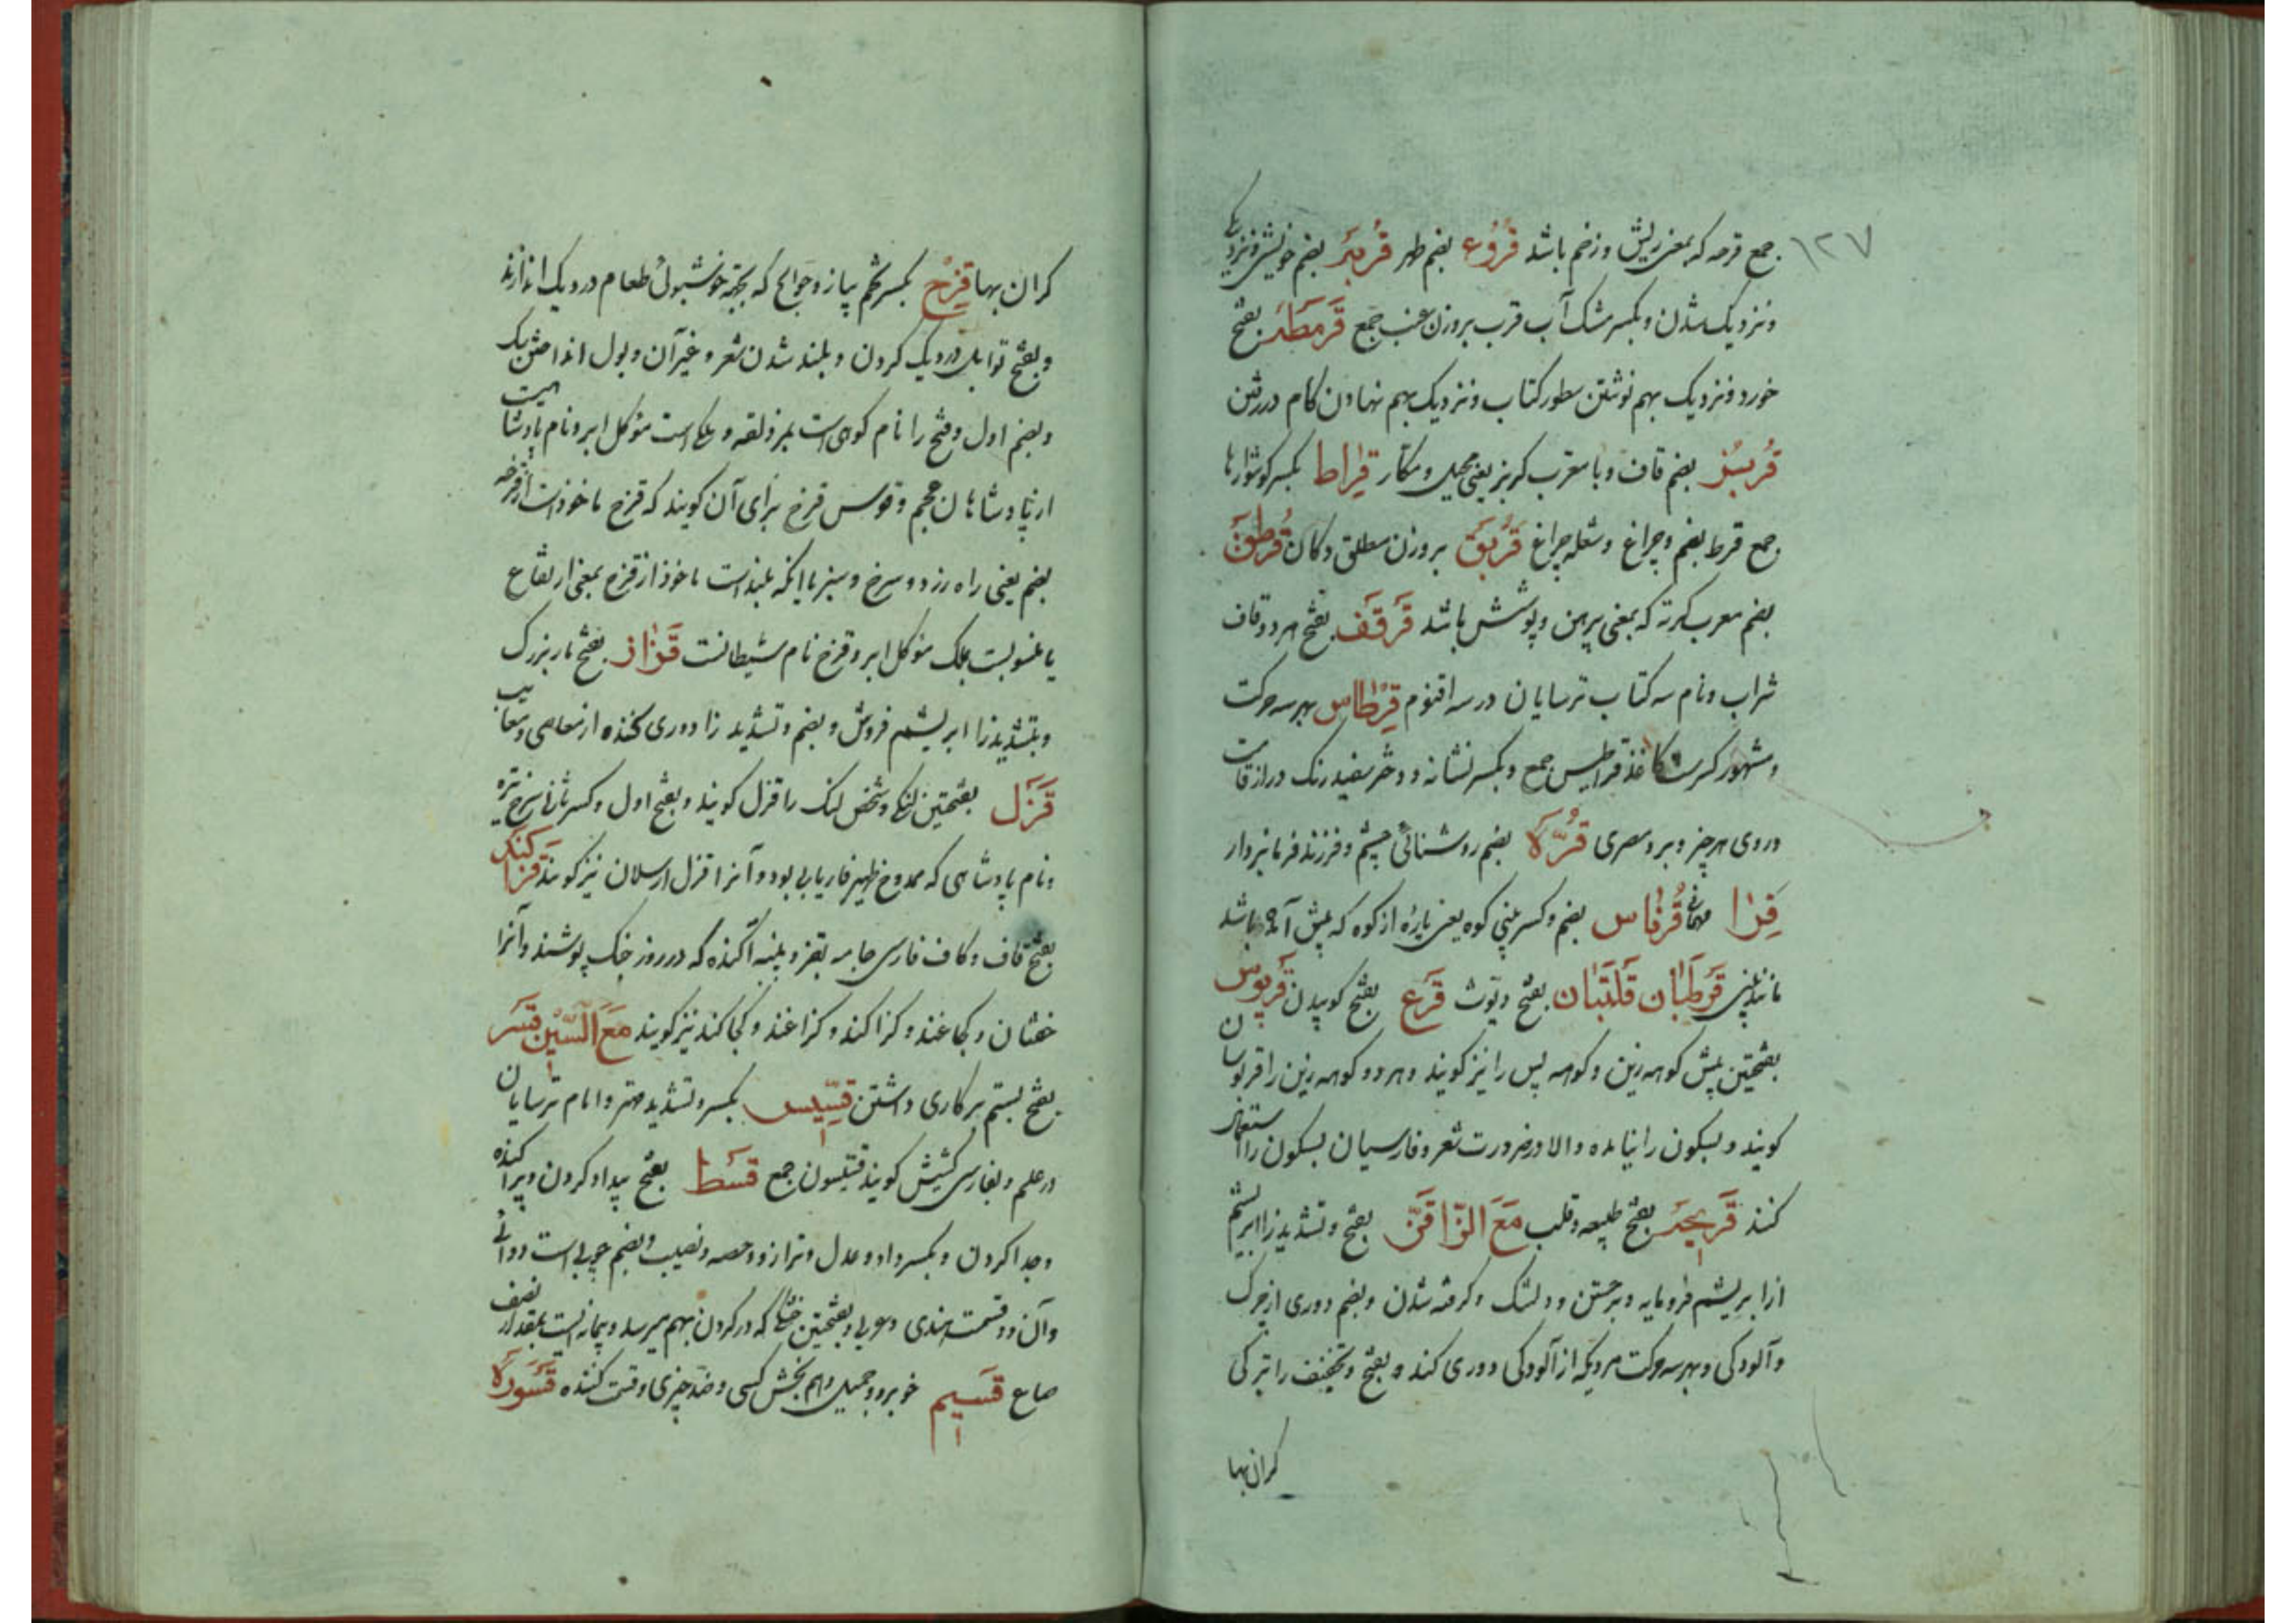 ۱۲۷
جمع قرحه که بمعنی ریش و زخم باشد قُرُوء بضم طهر قُربَة بضم خویشی و نزدیکی
و نزدیک شدن و بکسر مشک آب قرب بروزن عنب جمع قَرمَطَة بفتح
خورد و نزدیک بهم نوشتن سطور کتاب و نزدیک بهم نهادن کام در رفتن
قُربُز بضم قاف و با معرب کربز یعنی محیل و مکار قِراط بکسر کوشوارها
جمع قرط بضم و چراغ و شعله چراغ قُربَق بروزن مطلق دکان قُرطَق
بضم معرب کرته که بمعنی پیرهن و پوشش باشد قَرقَف بفتح هر دو قاف
شراب و نام سه کتاب ترسایان در سه اقنوم قِرطاس بهر سه حرکت
و مشهور کسرست کاغذ قراطیس جمع و بکسر نشانه و دختر سفید رنک دراز قامت
و روی هر چیز و برد مصری قُرَّة بضم روشنائی چشم و فرزند فرمانبردار
قِرا مهمانی قُرناس بضم و کسر بینی کوه یعنی پارهٔ از کوه که پیش آمده باشد
مانند بینی قَرطَبان قَلتَبان بفتح دیوث قَرع بفتح کوبیدن قَربوس
بفتحتین پیش کوهه زین و کوهه پس را نیز کویند و هر دو کوهه زین را قربوسان
کویند و بسکون را نیامده والا در ضرورت شعر و فارسیان بسکون را استعمال
کنند قَریحَة بفتح طبیعه و قلب مَعَ الزّا قَزّ بفتح و تشدید زا ابریشم
از ابریشم فرومایه و برجستن و دلتنک و کرفته شدن و بضم دوری از چرک
و آلودکی و بهر سه حرکت مردیکه از آلودکی دوری کند و بفتح و تخفیف را ترکی
کران بها
کران بها قِزح بکسر تخم پیاز و حوایج که بجهة خوشبوئ طعام در دیک اندازند
و بفتح توابل در دیک کردن و بلند شدن شعر و غیر آن و بول انداختن سک
و بضم اول و فتح را نام کوهی است بمزدلفه و ملکی است موکل ابر و نام پادشاهیت
از پادشاهان عجم و قوس قزح برای آن کویند که قزح ماخوذست از قزحه
بضم یعنی راه زرد و سرخ و سبز یا آنکه بلندست ماخوذ از قزح بمعنی ارتفاع
یا منسوبست بملک موکل ابر و قزح نام شیطانست قَزاز بفتح مار بزرک
و بتشدید زا ابریشم فروش و بضم و تشدید زا دوری کننده از معاصی و معایب
قَزَل بفتحتین لنکی و شخص لنک را قزل کویند و بفتح اول و کسر ثانی سرخ تیره
و نام پادشاهی که ممدوح ظهیر فاریابی بود و آنرا قزل ارسلان نیز کویند قَزاکَند
بفتح قاف و کاف فارسی جامه بقز و پنبه آکنده که در روز جنک پوشند و آنرا
خفتان و کجاغند و کزاکند و کزاغند و کجاکند نیز کویند مَعَ السّین قَسر
بفتح بستم بر کاری داشتن قِسّیس بکسر و تشدید مهتر و امام ترسایان
در علم و بفارسی کشیش کویند قسیسون جمع قَسط بفتح بیداد کردن و پراکنده
و جدا کردن و بکسر داد و عدل و ترازو و حصه و نصیب و بضم چوبی است دوائی
و آن دو قسمت هندی و عربی و بفتحتین که در کردن بهم میرسد و پیمانه ایست بمقدار نصف
صاع قَسیم خوبرو و جمیل و هم بخش کسی و ضد چیزی و قسمت کننده قَسوَرَة